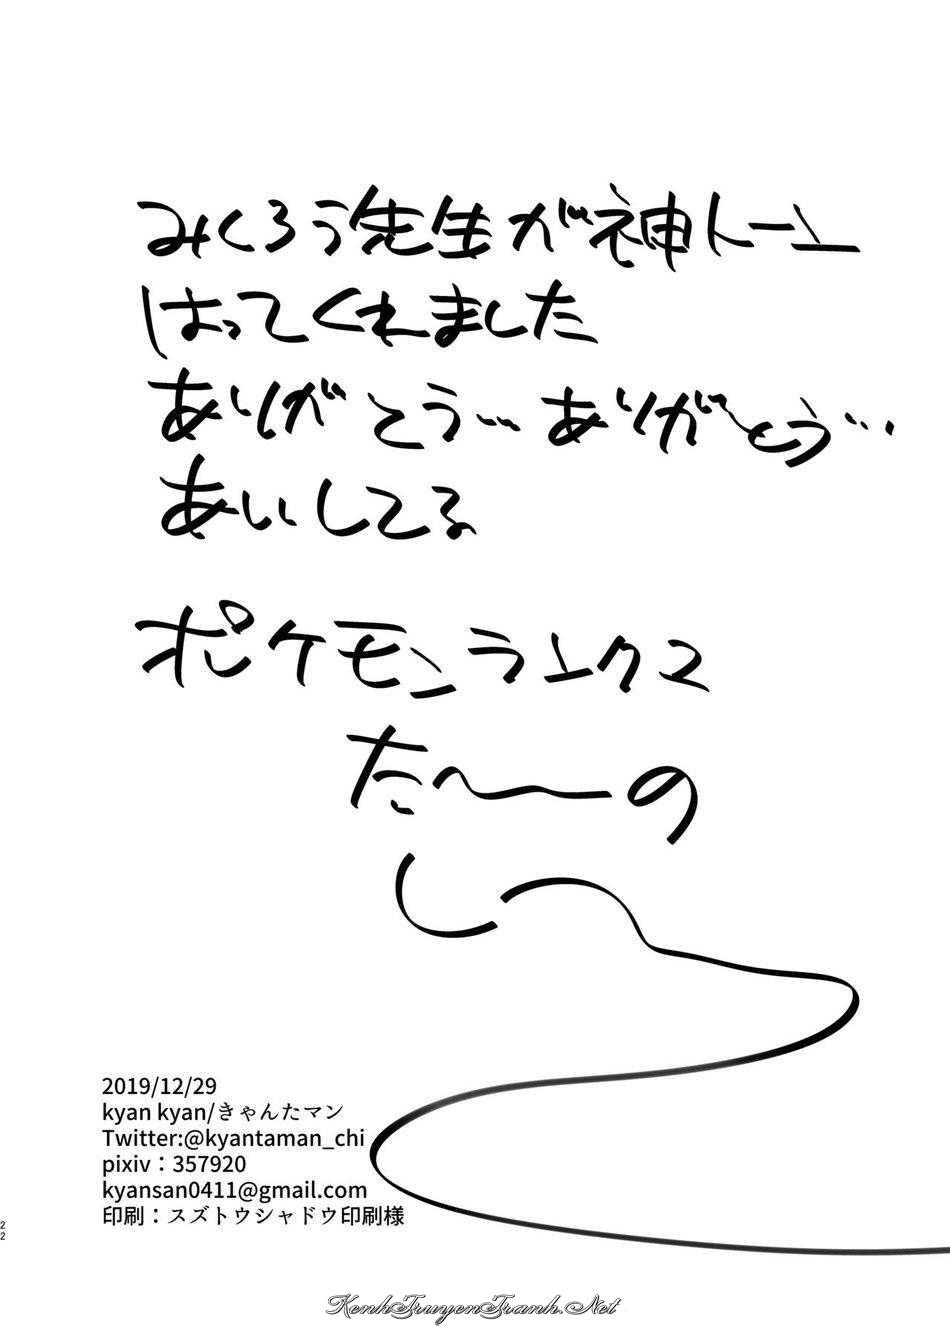 みくろう先生が神トーン
はってくれました
ありがとう… ありがとう…
あいしてる
ポケモンランクマ
た〜〜の
し〜
2019/12/29
kyan kyan/きゃんたマン
Twitter:@kyantaman_chi
pixiv：357920
kyansan0411@gmail.com
印刷：スズトウシャドウ印刷様
22
KenhTruyenTranh.Net